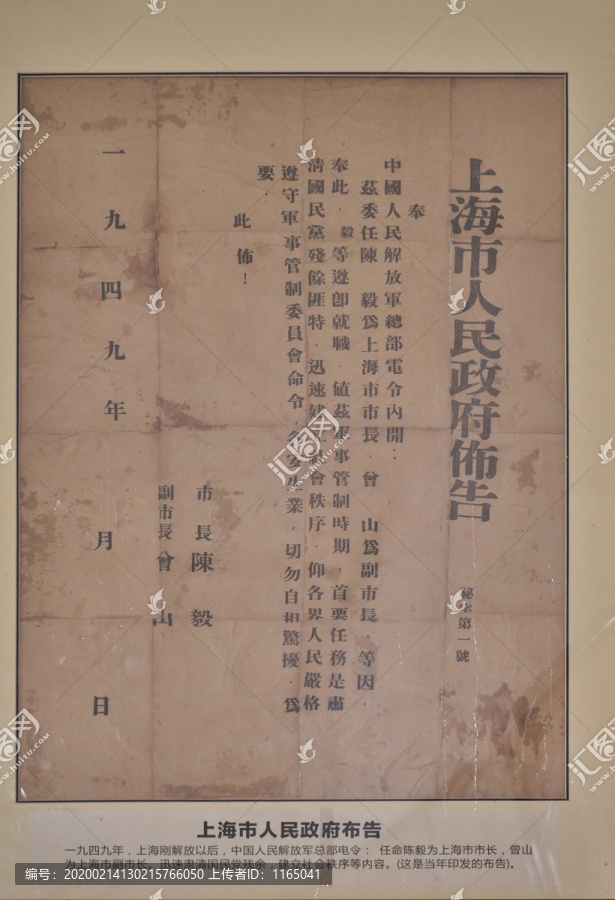 上海市人民政府佈告
秘字第一號
奉
中國人民解放軍總部電令內開：
茲委任陳 毅爲上海市市長．曾 山爲副市長．等因．
奉此．毅等遵卽就職．值茲軍事管制時期．首要任務是肅
清國民黨殘餘匪特．迅速建立社會秩序．仰各界人民嚴格
遵守軍事管制委員會命令．各安生業．切勿自相驚擾．爲
要．
此佈！
市長陳 毅
副市長曾 山
一九四九年 月 日
上海市人民政府布告
一九四九年，上海刚解放以后，中国人民解放军总部电令： 任命陈毅为上海市市长，曾山
为上海市副市长，迅速肃清国民党残余，建立社会秩序等内容。(这是当年印发的布告)。
编号：20200214130215766050 上传者ID：1165041
汇图网
www.huitu.com